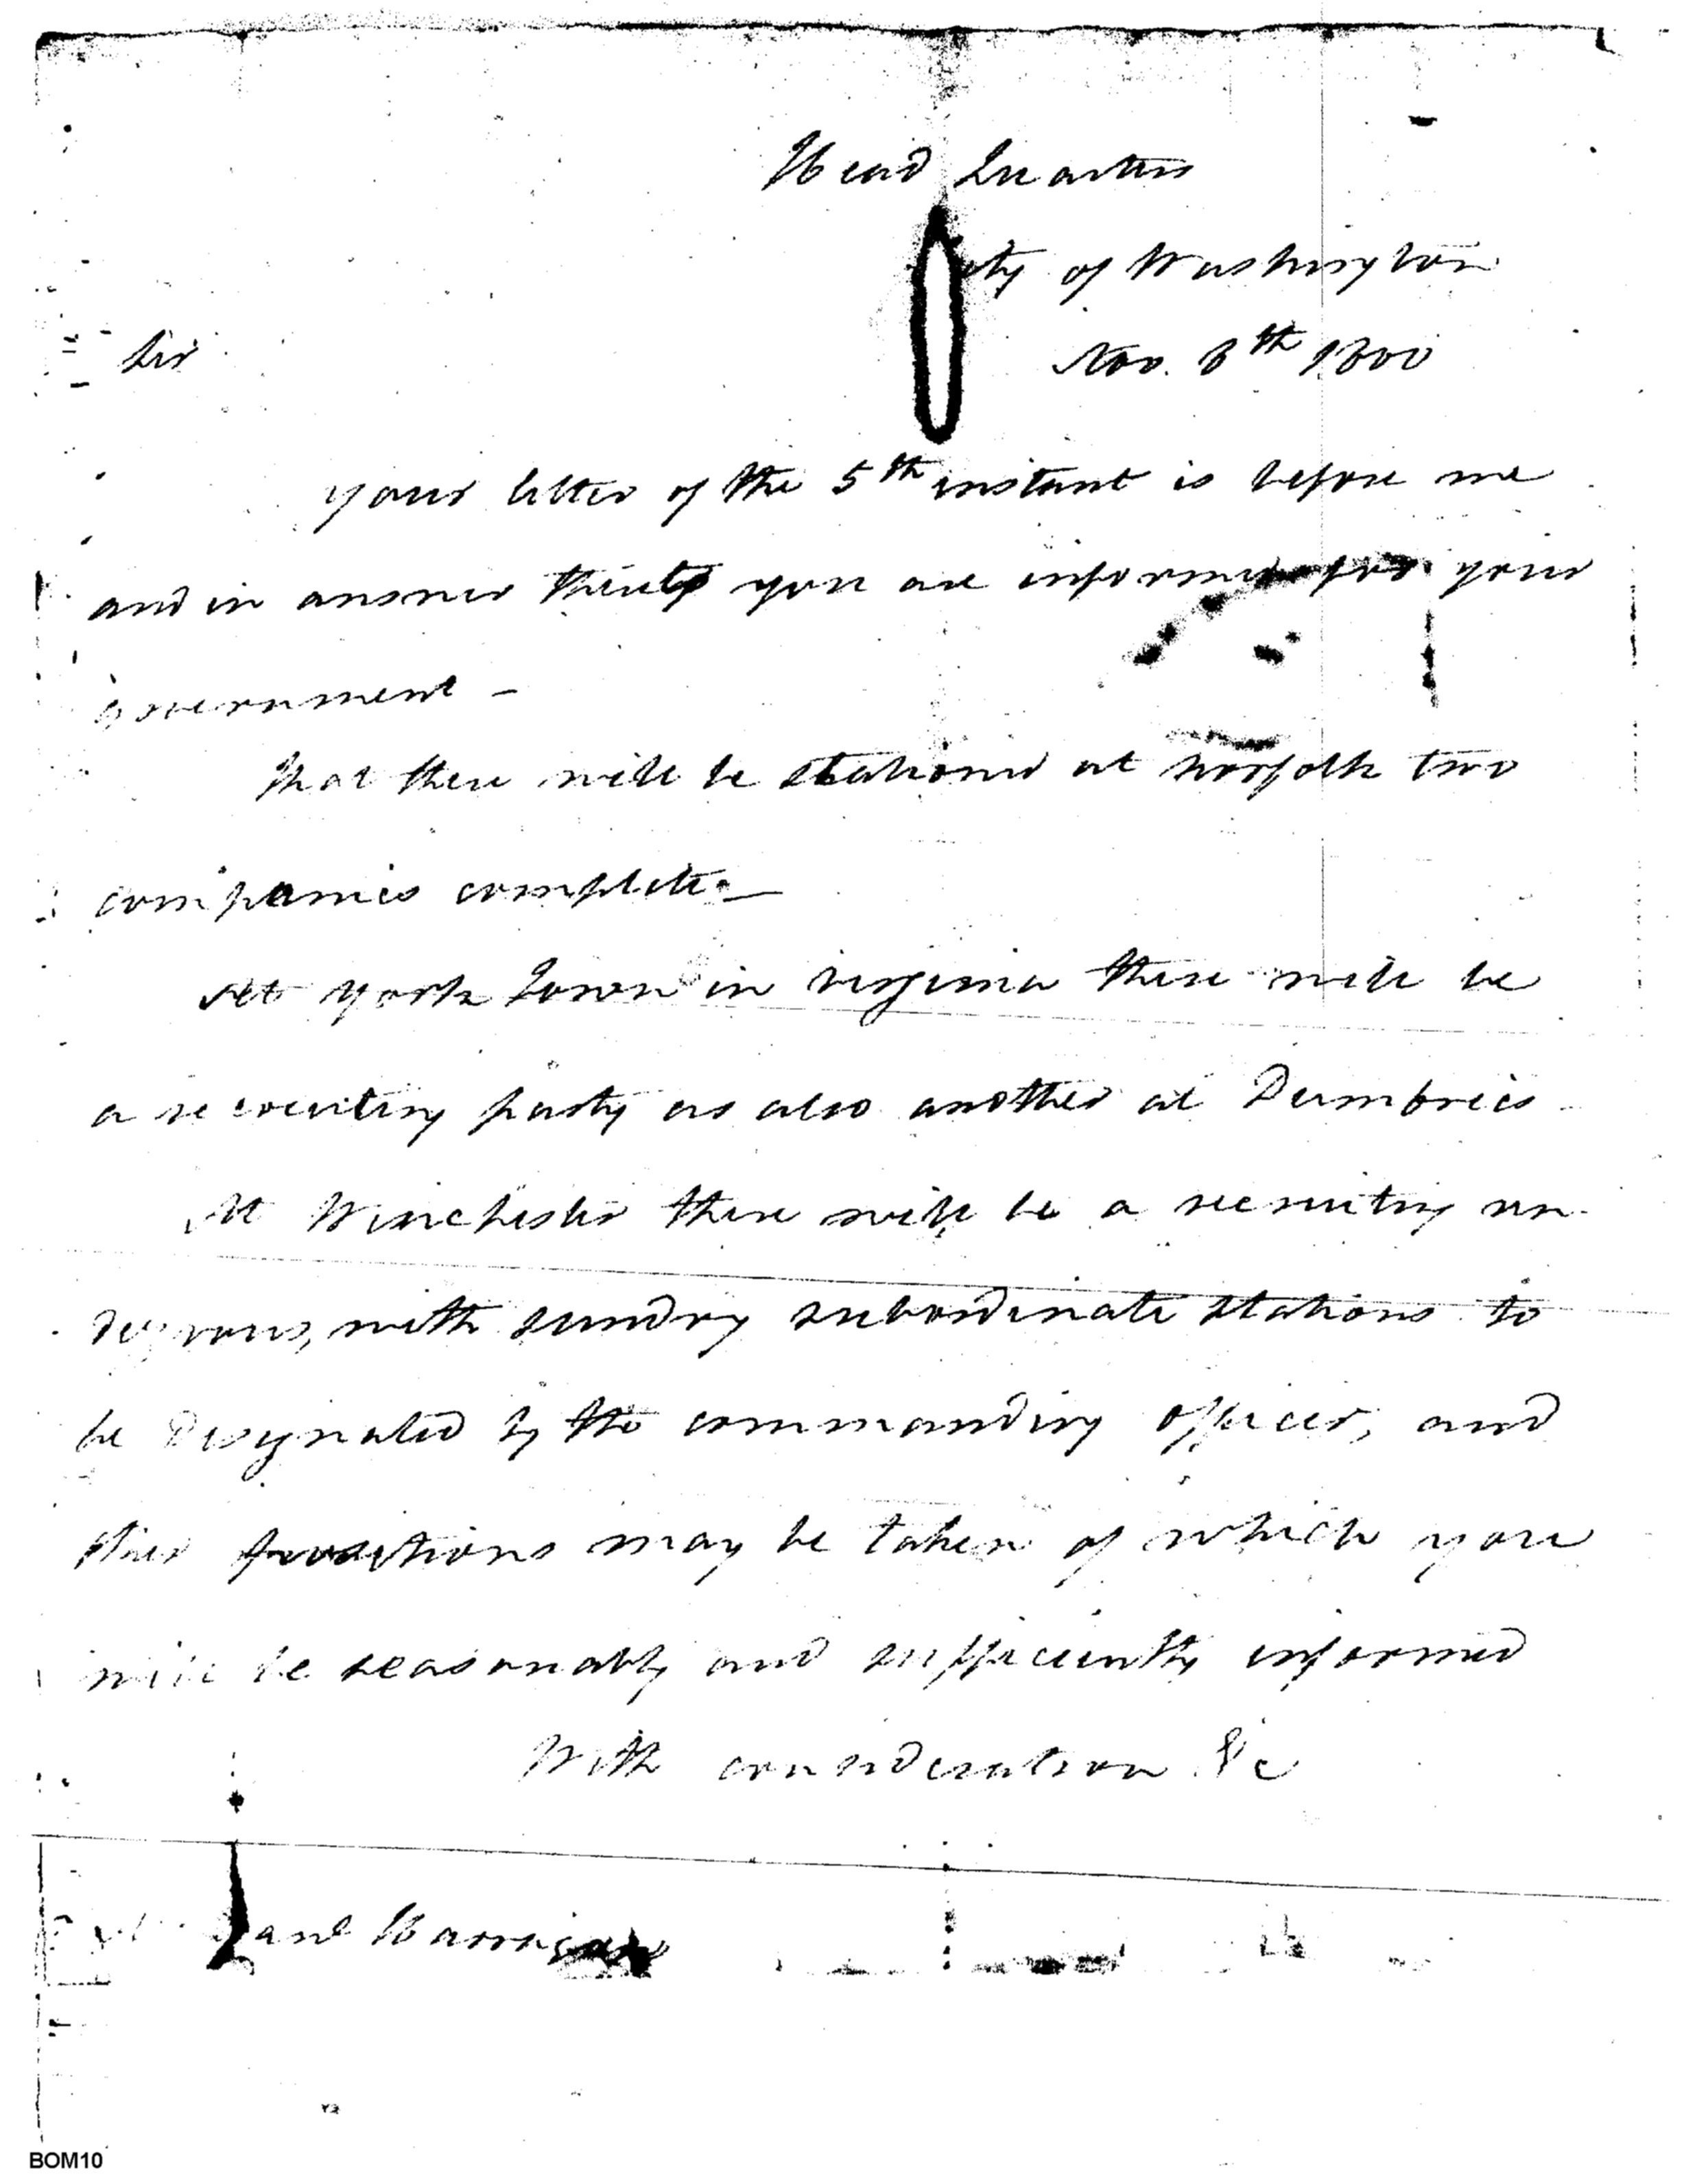 Head Quarters
City of Washington
Sir
Nov. 8th 1800
your letter of the 5th instant is before me
and in answer you are informed for your
government –
That there will be stationed at norfolk two
companies complete. –
At york Town in virginia there will be
a recruiting party as also another at Dumfries
At Winchester there will be a recruiting ren-
dezvous, with sundry subordinate stations to
be designated by the commanding officer, and
other positions may be taken of which you
will be seasonably and sufficiently informed
With consideration &c
BOM10